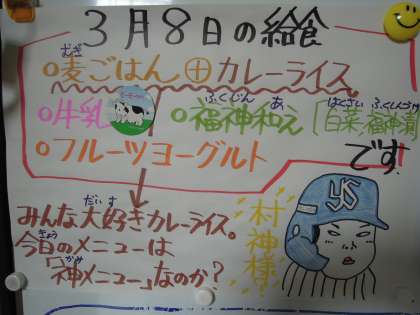 3月8日の給食
麦ごはん⊕カレーライス
むぎ
牛乳
福神和え〔白菜、福神漬〕
ふくじん あ はくさい ふくしんづけ
フルーツヨーグルト
です
みんな大好きカレーライス。
だいす
今日のメニューは
きょう
「神メニュー」なのか?
かみ
村神様!
YS